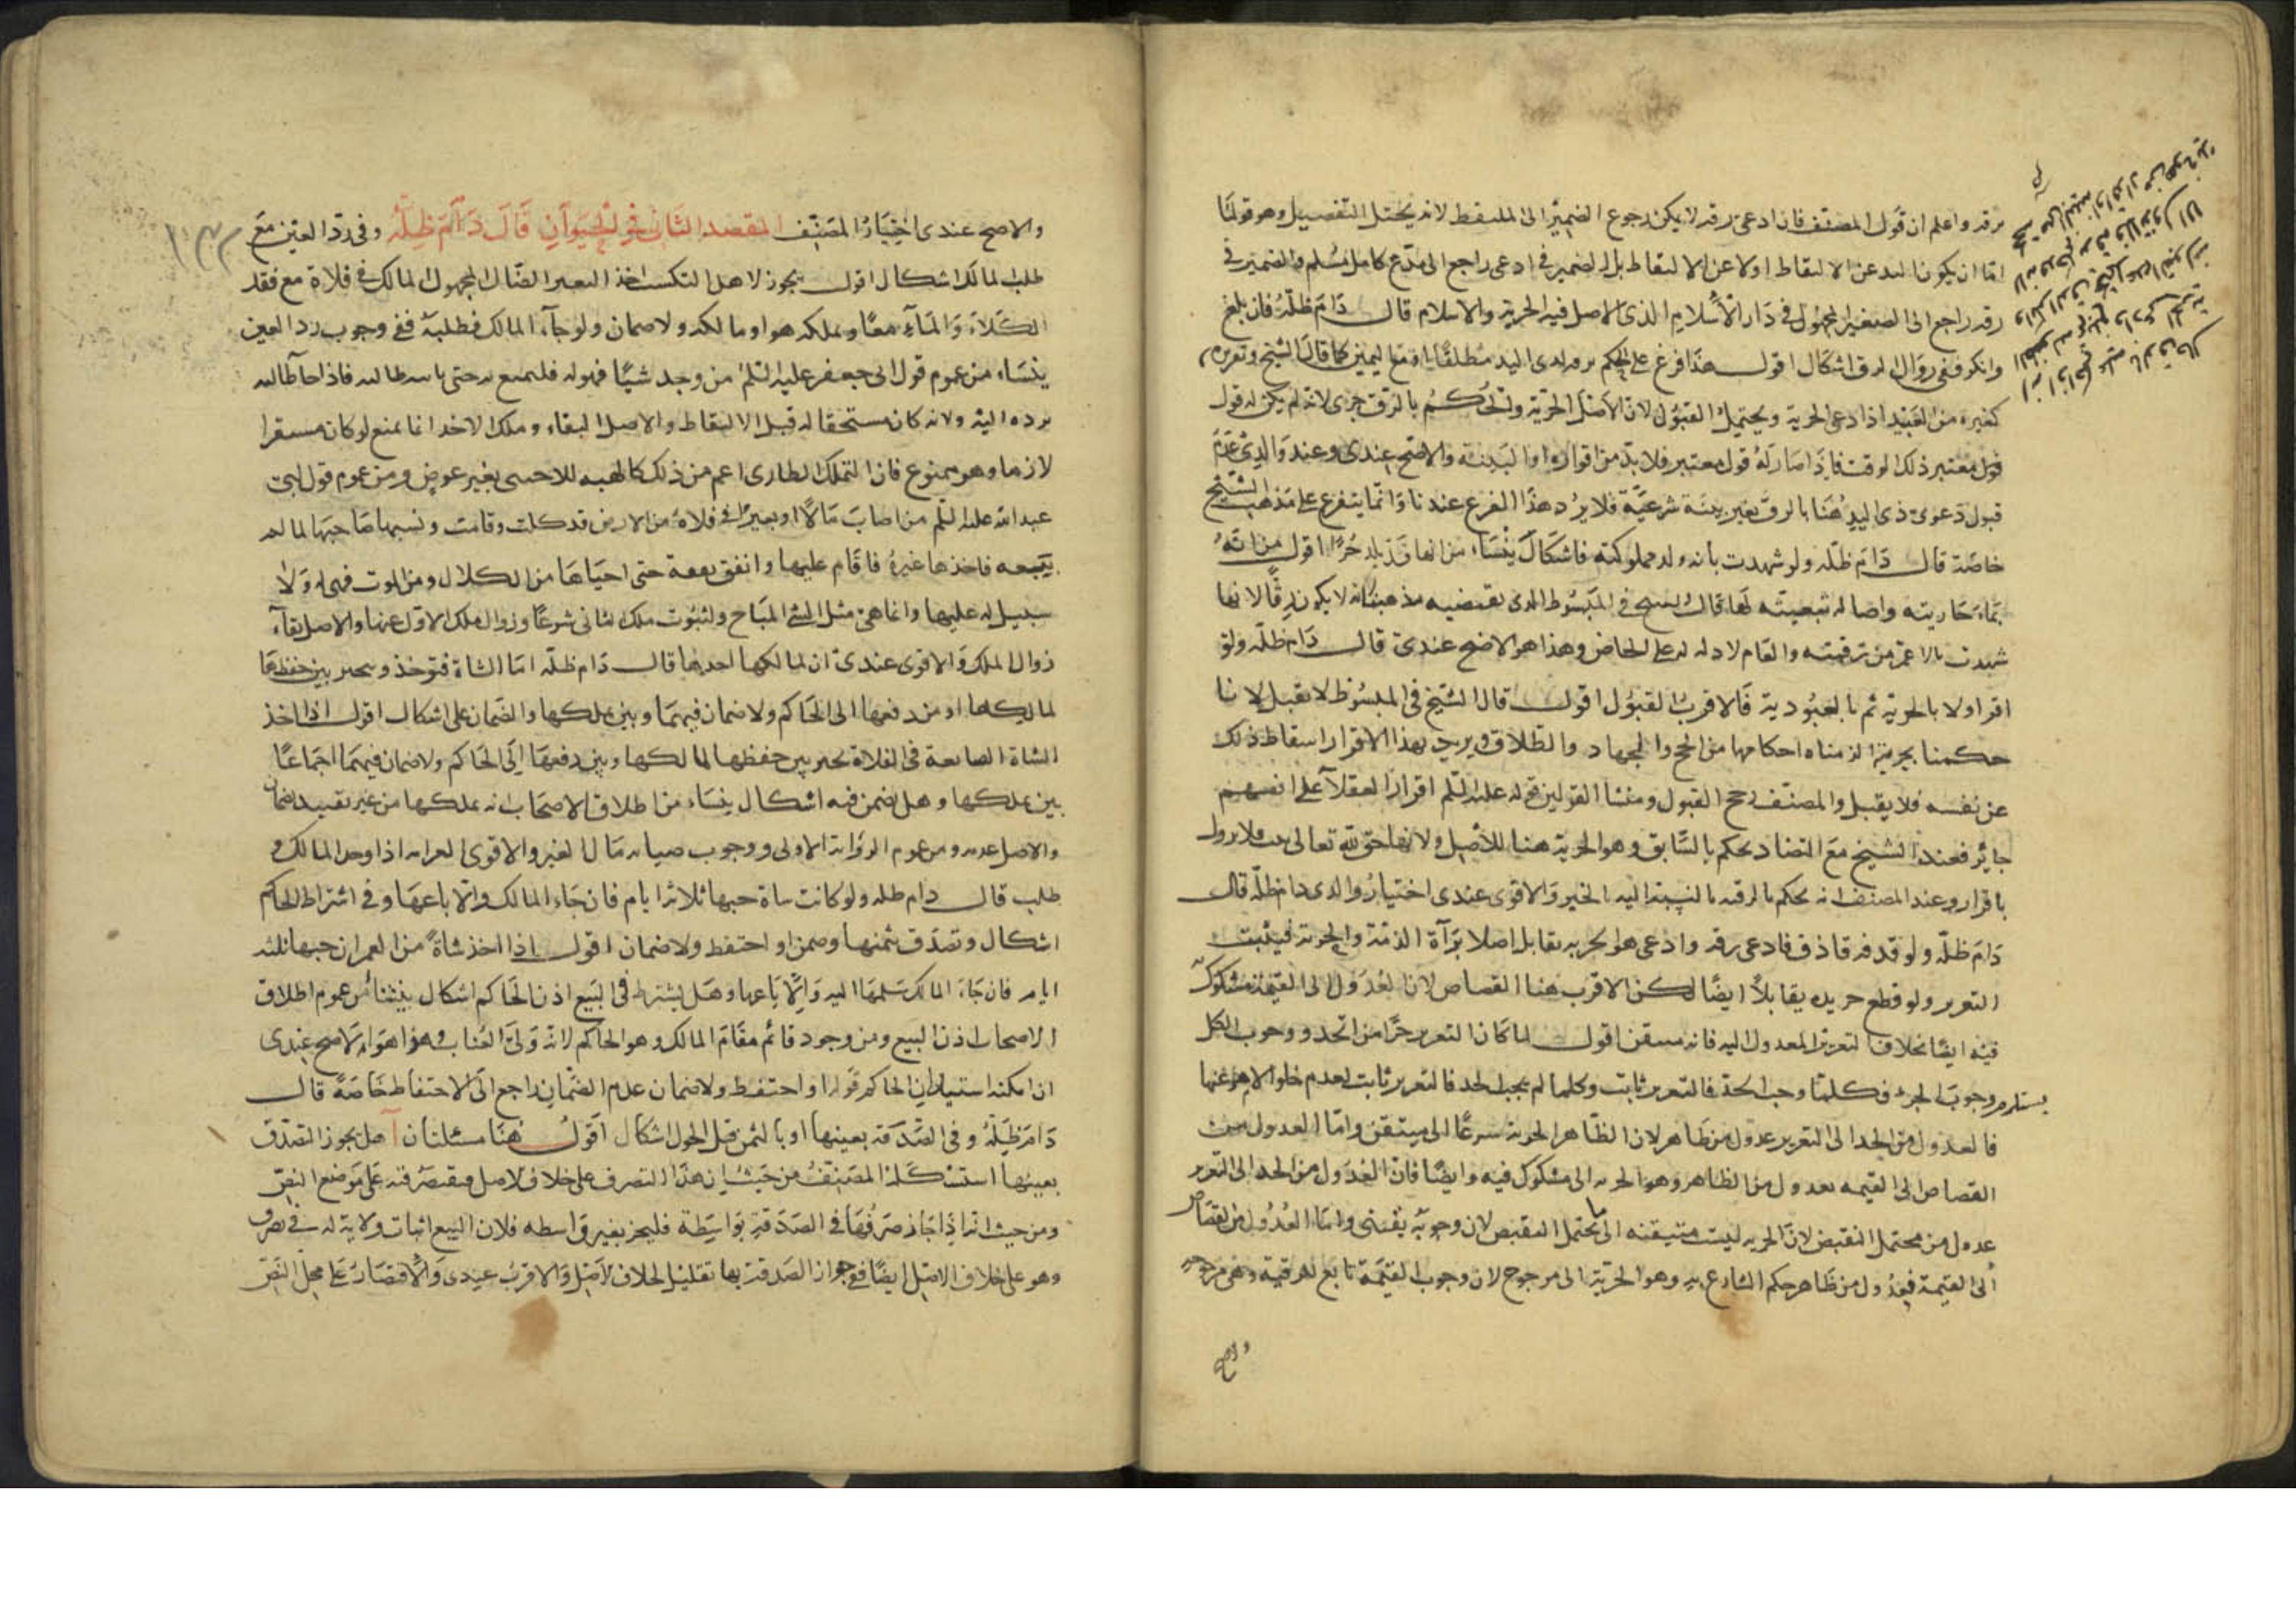 برقه واعلم ان قول المصنف فان ادعى رقه لا يمكن رجوع الضمير الى الملتقط لانه يحتمل التفصيل وهو قولنا
اما ان يكون بالبد عن الالتقاط اولا عن الالتقاط بل الضمير في ادعى راجع الى مدع كامل مسلم والضمير في
رقه راجع الى الصغير المجهول في دار الاسلام الذى الاصل فيه الحرية والاسلام قال دام ظله فان بلغ
وانكر ففى زوال الرق اشكال اقول هذا فرع على الحكم برقه لدى اليد مطلقا او مع اليمين كما قاله الشيخ وتقريره
كغيره من العبيد اذا ادعى الحرية ويحتمل القبول لان الاصل الحرية والحكم بالرق جرى لانه لم يكن له قول
قول معتبر ذلك الوقت فاذا صار له قول معتبر فلابد من اقراره او البينة والاصح عندى وعند والدى عدم
قبول دعوى ذى اليد هنا بالرق بغير بينة شرعية فلا يرد هذا الفرع عندنا وانما يتفرع على مذهب الشيخ
خاصة قال دام ظله ولو شهدت بانه ولد مملوكته فاشكال ينشاء من انها قد تلد حرا اقول من انه
نماء جاريته واصالة تبعيته لها قال الشيخ في المبسوط الذى يقتضيه مذهبنا انه لا يكون رقا لانها
شهدت بالاعم من رقيته والعام لا دلالة له على الخاص وهذا هو الاصح عندى قال دام ظله ولو
اقر اولا بالحرية ثم بالعبودية فالاقرب القبول اقول قال الشيخ في المبسوط لا يقبل لانا
حكمنا بحريته الزمناه احكامها من الحج والجهاد والطلاق ويريد بهذا الاقرار اسقاط ذلك
عن نفسه فلا يقبل والمصنف رجح القبول ومنشا القولين قوله عليه السلم اقرار العقلاء على انفسهم
جايز فعند الشيخ مع التضاد يحكم بالسابق وهو الحرية هنا للاصل ولانها حق لله تعالى فلا يزول
باقراره وعند المصنف انه يحكم بالرقية بالنسبة اليه الاخير والاقوى عندى اختيار والدى دام ظله قال
دام ظله ولو قذفه قاذف فادعى رقه وادعى هو الحرية تقابل اصلا براءة الذمة والحرية فيثبت
التعزير ولو قطع حر يده تقابلا ايضا لكن الاقرب هنا القصاص لان العدول الى القيمة مشكوك
فيه ايضا بخلاف التعزير المعدول اليه فانه مستيقن اقول لما كان التعزير جزءا من الحد ووجوب الكل
يستلزم وجوب الجزء فكلما وجب الحد فالتعزير ثابت وكلما لم يجب الحد فالتعزير ثابت لعدم خلو الامر عنهما
فالعدول من الحد الى التعزير عدول من ظاهر لان الظاهر الحرية شرعا الى متيقن واما العدول من
القصاص الى القيمه عدول من الظاهر وهو الحرية الى مشكوك فيه وايضا فان العدول من الحد الى التعزير
عدول من محتمل النقيض لان الحرية ليست متيقنه الى ما لا يحتمل النقيض لان وجوبه يقينى واما العدول من القصاص
الى القيمة فعدول من ظاهر حكم الشارع به وهو الحرية الى مرجوح لان وجوب القيمة تابع لرقيته وهى مرجوحة
والاصح
والاصح عندى اختيار المصنف المقصد الثانى في الحيوان قال دام ظله وفى رد العين مع
طلب المالك اشكال اقول يجوز لاهل التكسب اخذ البعير الضال المجهول المالك في فلاة مع فقد
الكلاء والماء معا ويملكه هو او مالكه ولا ضمان ولو جاء المالك فطلبه ففى وجوب رد العين
ينشاء من عموم قول ابى جعفر عليه السلم من وجد شيئا فهو له فليتمتع به حتى ياتيه طالبه فاذا جاء طالبه
برده اليه ولانه كان مستحقا له قبل الالتقاط والاصل البقاء وملك الاخذ انما يمنع لو كان مستقرا
لازما وهو ممنوع فان التملك الطارى اعم من ذلك كالهبه للاجنبى بغير عوض ومن عموم قول ابى
عبد الله عليه السلم من اصاب مالا او بعيرا في فلاة من الارض قد كلت وقامت ونسيها صاحبها لما لم
يتبعه فاخذها غيره فاقام عليها وانفق نفقة حتى احياها من الكلال ومن الموت فهى له ولا
سبيل له عليها وانما هى مثل الشئ المباح ولثبوت ملك الثانى شرعا وزوال ملك الاول عنها والاصل بقاء
زوال الملك والاقوى عندى ان لمالكها اخذها قال دام ظله اما الشاة فتوخذ ويتخير بين حفظها
لمالكها او من دفعها الى الحاكم ولا ضمان فيهما وبين تملكها والضمان على اشكال اقول اذا اخذ
الشاة الضايعة في الفلاة تخير بين حفظها لمالكها وبين دفعها الى الحاكم ولا ضمان فيهما اجماعا
بين تملكها وهل يضمن فيه اشكال ينشاء من اطلاق الاصحاب انه يملكها من غير تقييد بضمان
والاصل عدمه ومن عموم الرواية الاولى ووجوب صيانة مال الغير والاقوى الغرامه اذا وجد المالك و
طلب قال دام ظله ولو كانت شاة حبسها ثلاثة ايام فان جاء المالك والا باعها وفى اشتراط الحاكم
اشكال وتصدق بثمنها وضمن او احتفظ ولا ضمان اقول اذا اخذ شاة من العمران حبسها ثلثه
ايام فان جاء المالك سلمها اليه والا باعها وهل يشترط في البيع اذن الحاكم اشكال ينشاء من عموم اطلاق
الاصحاب اذن البيع ومن وجود قائم مقام المالك وهو الحاكم لانه ولى الغياب وهذا هو الاصح عندى
ان امكنه استيذان الحاكم قوله او احتفظ ولا ضمان عدم الضمان راجع الى الاحتفاظ خاصة قال
دام ظله وفى الصدقة بعينها او بالثمن قبل الحول اشكال اقول هنا مسئلتان آ هل يجوز التصدق
بعينها استشكله المصنف من حيث ان هذا التصرف على خلاف الاصل فيقتصر فيه على موضع النص
ومن حيث انه اذا جاز صرفها في الصدقة بواسطة فليجز بغير واسطه فلان البيع اثبات ولاية له في تصرف
وهو على خلاف الاصل ايضا ففى جواز الصدقة بها تقليل لخلاف الاصل والاقرب عندى والاقتصار على محل النص